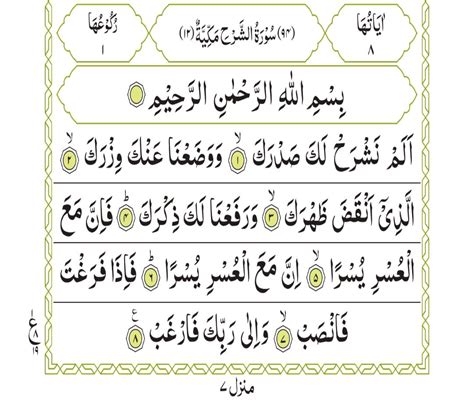 اٰيَاتُهَا ٨
(٩٤) سُوْرَةُ الشَّرْحِ مَكِّيَّةٌ (١٢)
رُكُوْعُهَا ١
بِسْمِ اللّٰهِ الرَّحْمٰنِ الرَّحِيْمِ
اَلَمْ نَشْرَحْ لَكَ صَدْرَكَ ۙ﴿١﴾ وَوَضَعْنَا عَنْكَ وِزْرَكَ ۙ﴿٢﴾
الَّذِيْۤ اَنْقَضَ ظَهْرَكَ ۙ﴿٣﴾ وَرَفَعْنَا لَكَ ذِكْرَكَ ؕ﴿٤﴾ فَاِنَّ مَعَ
الْعُسْرِ يُسْرًا ۙ﴿٥﴾ اِنَّ مَعَ الْعُسْرِ يُسْرًا ؕ﴿٦﴾ فَاِذَا فَرَغْتَ
فَانْصَبْ ۙ﴿٧﴾ وَاِلٰى رَبِّكَ فَارْغَبْ ۧ﴿٨﴾
ع ٨ ١٩
منزل ٧